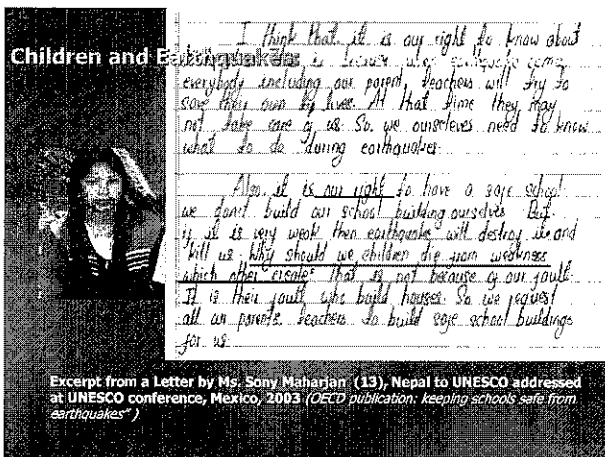 Children and Earthquakes
I think that it is our right to know about
is because when earthquake comes
everybody including our parent, teachers will try to
save they own by lives. At that time they may
not take care of us. So, we ourseleves need to know
what to do during earthquakes.
Also, it is our right to have a safe school.
we don't build our school building ourselves. But
if it is very weak then earthquake will destroy it and
kill us. Why should we children die from weakness
which other create? That is not because of our fault.
It is their fault who build houses. So we request
all our parents, teachers to build safe school buildings
for us.
Excerpt from a Letter by Ms. Sony Maharjan (13), Nepal to UNESCO addressed
at UNESCO conference, Mexico, 2003 (OECD publication: keeping schools safe from
earthquakes")